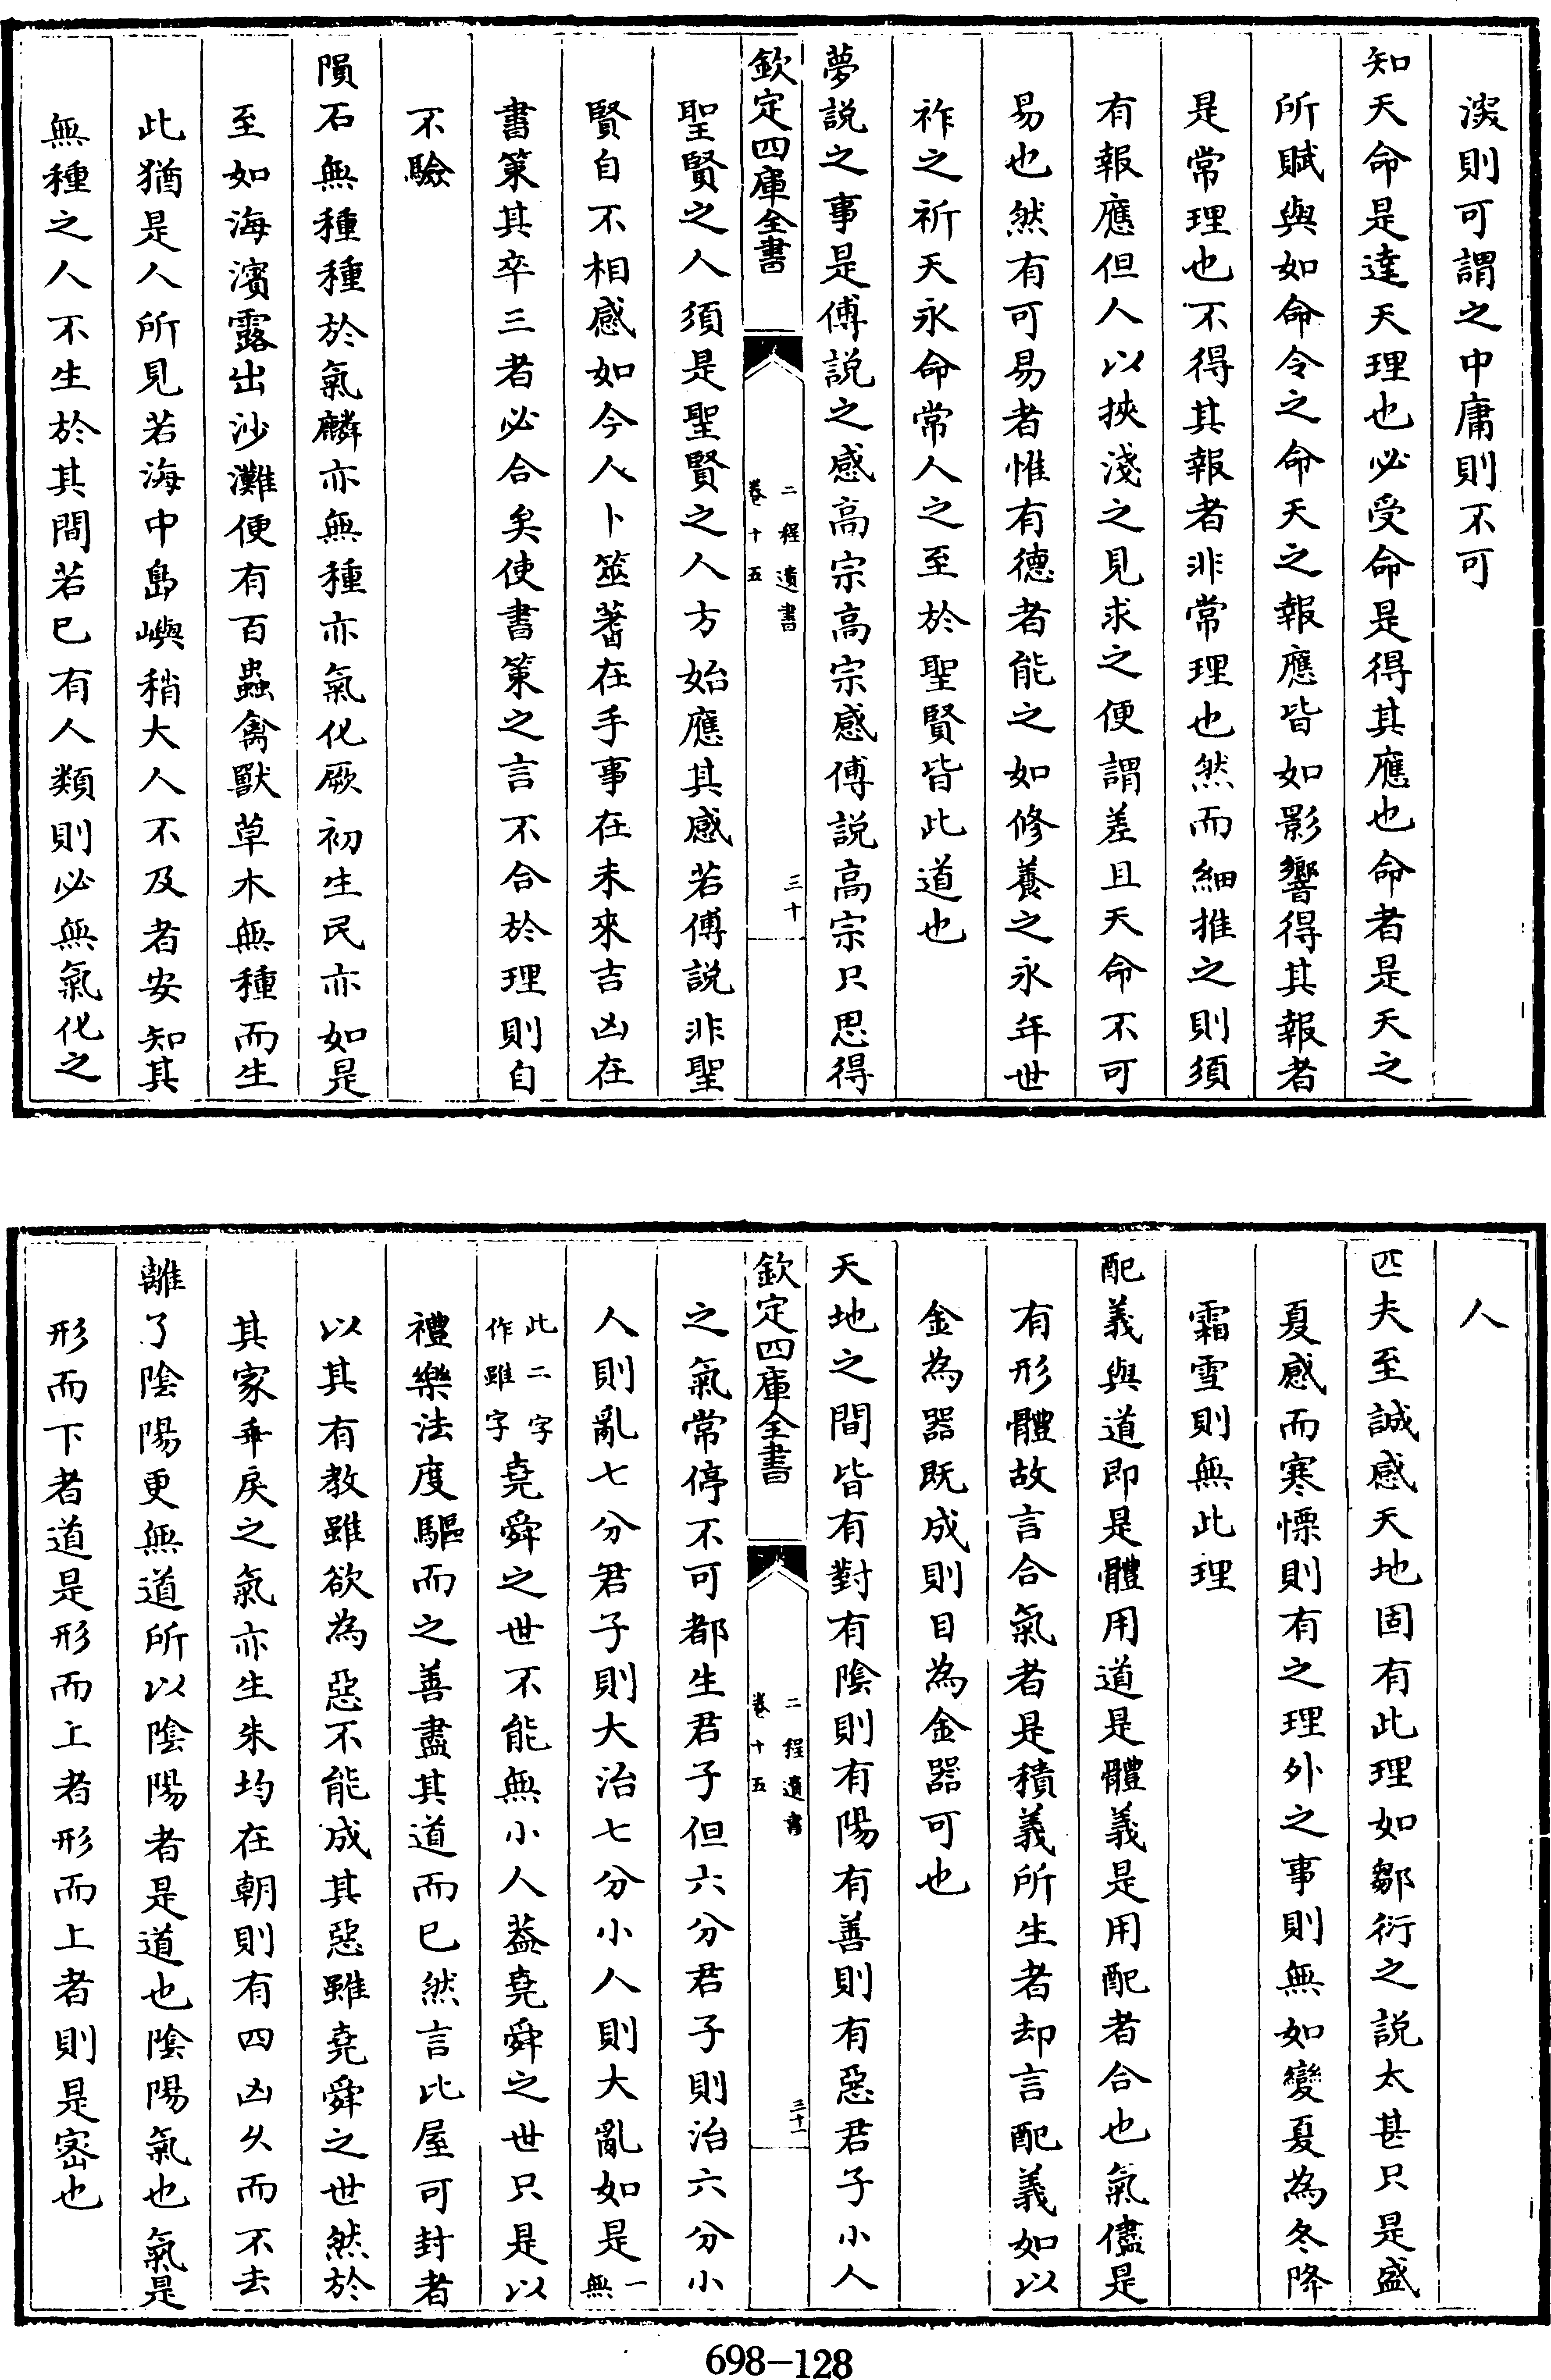 淡則可謂之中庸則不可
知天命是達天理也必受命是得其應也命者是天之
所賦與如命令之命天之報應皆如影響得其報者
是常理也不得其報者非常理也然而細推之則須
有報應但人以挾淺之見求之便謂差且天命不可
易也然有可易者惟有德者能之如修養之永年世
祚之祈天永命常人之至於聖賢皆此道也
夢説之事是傅説之感高宗高宗感傅説高宗只思得
欽定四庫全書
二程遺書
卷十五
三十
聖賢之人須是聖賢之人方始應其感若傅説非聖
賢自不相感如今人卜筮蓍在手事在未來吉凶在
書策其卒三者必合矣使書策之言不合於理則自
不驗
隕石無種種於氣麟亦無種亦氣化厥初生民亦如是
至如海濱露出沙灘便有百蟲禽獸草木無種而生
此猶是人所見若海中島嶼稍大人不及者安知其
無種之人不生於其間若已有人類則必無氣化之
人
匹夫至誠感天地固有此理如鄒衍之説太甚只是盛
夏感而寒慄則有之理外之事則無如變夏為冬降
霜雪則無此理
配義與道即是體用道是體義是用配者合也氣儘是
有形體故言合氣者是積義所生者却言配義如以
金為器既成則目為金器可也
天地之間皆有對有陰則有陽有善則有惡君子小人
欽定四庫全書
二程遺書
卷十五
三十一
之氣常停不可都生君子但六分君子則治六分小
人則亂七分君子則大治七分小人則大亂如是一無
此二字作雖字堯舜之世不能無小人葢堯舜之世只是以
禮樂法度驅而之善盡其道而已然言比屋可封者
以其有教雖欲為惡不能成其惡雖堯舜之世然於
其家乖戾之氣亦生朱均在朝則有四凶久而不去
離了陰陽更無道所以陰陽者是道也陰陽氣也氣是
形而下者道是形而上者形而上者則是密也
698-128